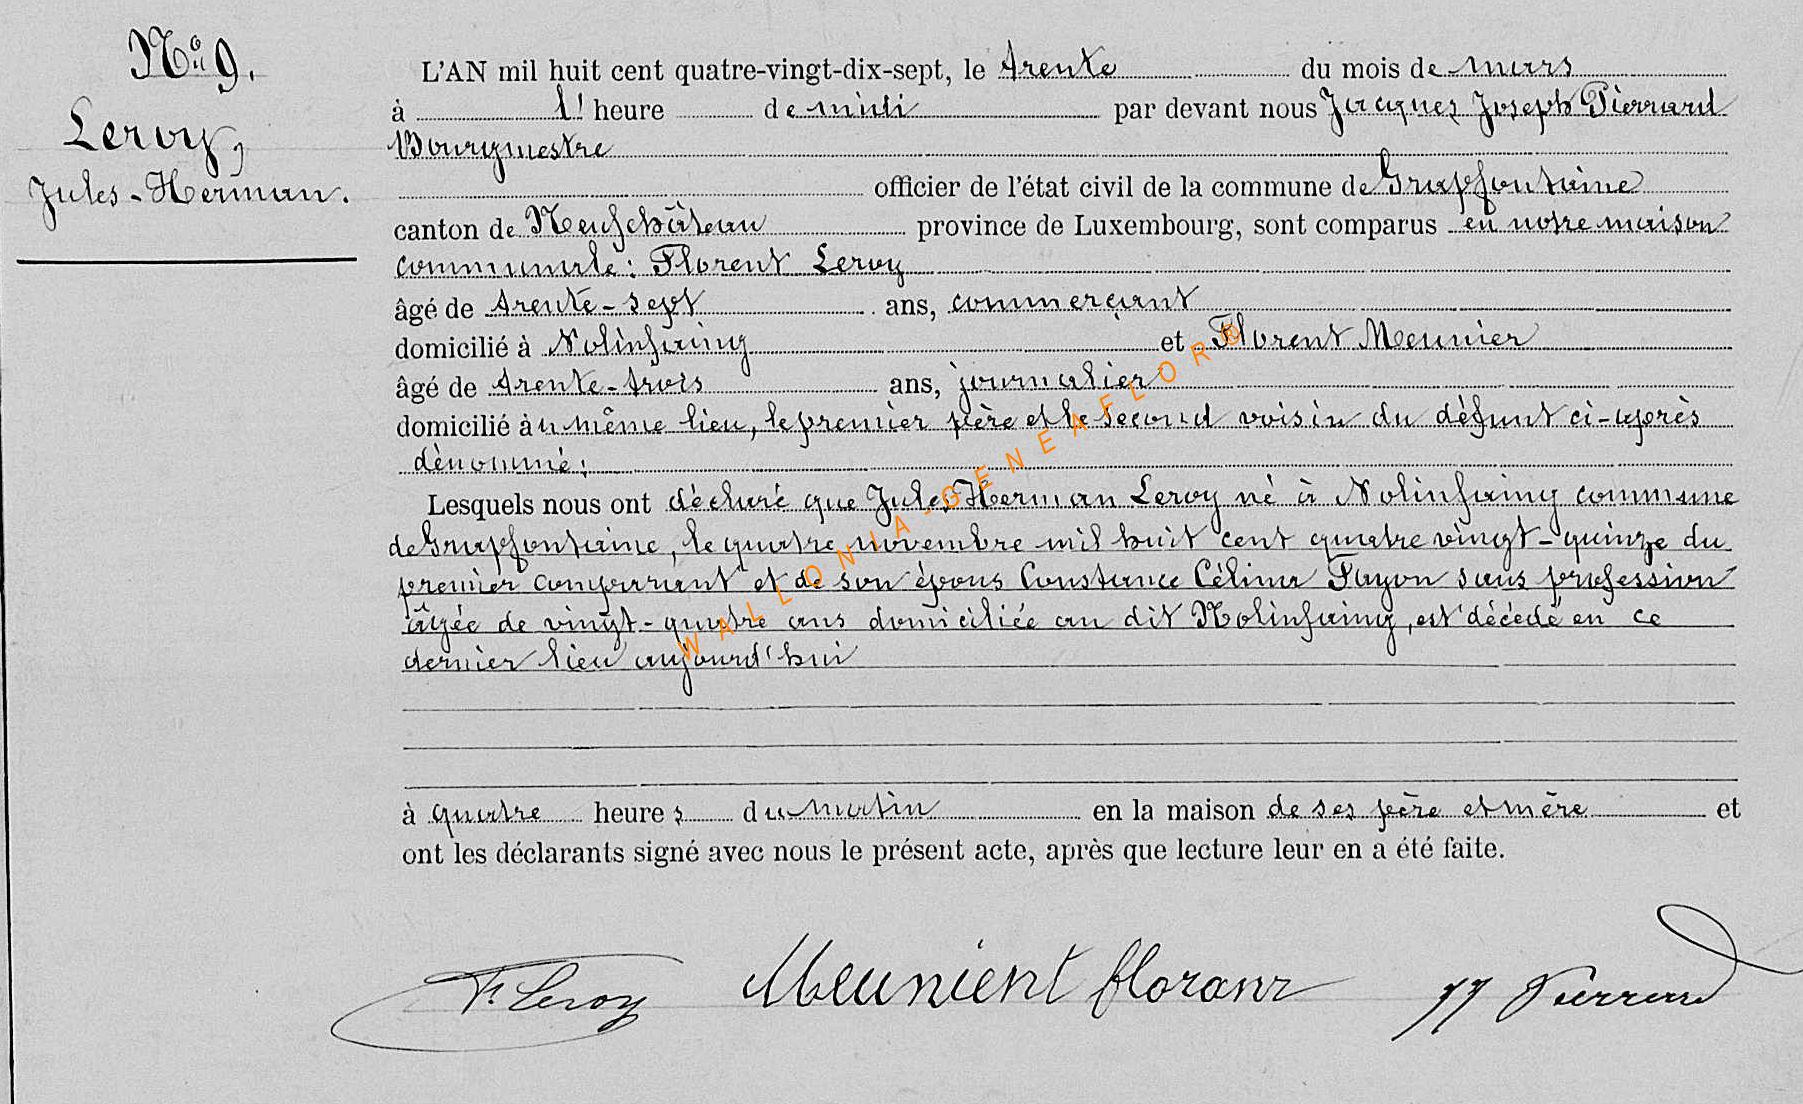 No 9.
Leroy,
Jules-Herman.
L'AN mil huit cent quatre-vingt-dix-sept, le trente du mois de mars
à l' heure de midi par devant nous Jacques Joseph Pierrard
Bourgmestre
officier de l'état civil de la commune de Grapfontaine
canton de Neufchâteau province de Luxembourg, sont comparus en notre maison
communale: Florent Leroy
âgé de trente-sept ans, commerçant
domicilié à Nolinfaing et Florent Meunier
âgé de trente-trois ans, journalier
domicilié àu même lieu, le premier père et le second voisin du défunt ci-après
dénommé;
Lesquels nous ont déclaré que Jules Herman Leroy né à Nolinfaing commune
de Grapfontaine, le quatre novembre mil huit cent quatre vingt-quinze du
premier comparant et de son épous Constance Célina Fayon sans profession
âgée de vingt-quatre ans domiciliée au dit Nolinfaing, est décédé en ce
dernier lieu aujourd'hui
à quatre heures du matin en la maison de ses père et mère et
ont les déclarants signé avec nous le présent acte, après que lecture leur en a été faite.
F. Leroy Meunient floranr JJ Pierrard
WALLONIA-GENEAFLOR®